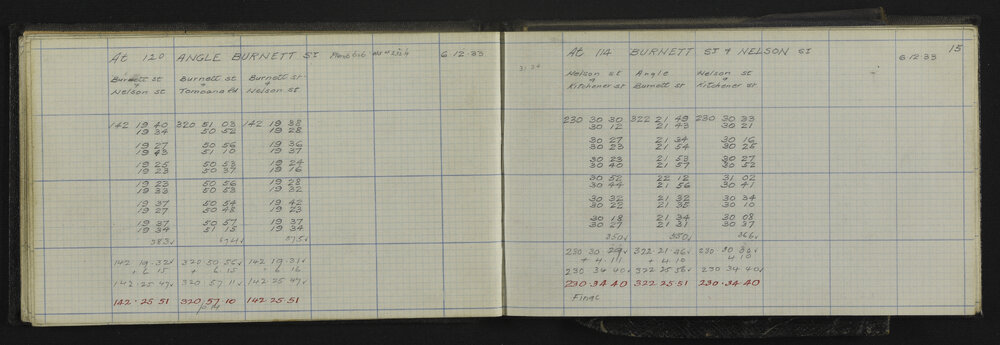 At 120 ANGLE BURNETT ST 6.12.33
Burnett st Burnett st Burnett st
& & &
Nelson st Tomoana Rd Nelson st
142 19 40 320 51 03 142 19 38
19 34 50 52 19 28
19 27 50 56 19 36
19 43 51 10 19 37
19 25 50 53 19 24
19 23 50 37 19 16
19 23 50 56 19 28
19 33 50 53 19 32
19 37 50 54 19 42
19 27 50 48 19 23
19 37 50 57 19 37
19 34 51 15 19 34
383√ 674√ 375√
142 19 32√ 320 50 56√ 142 19 31√
+ 6 15 + 6 15 6 16
142 25 47√ 320 57 11√ 142 25 47√
142.25 51 320 57.10 142.25.51
p 14
15
At 114 BURNETT ST & NELSON ST 6.12.33
31.34
Nelson st Angle Nelson st
& &
Kitchener st Burnett st Kitchener st
230 30 30 322 21 49 230 30 33
30 12 21 43 30 21
30 27 21 34 30 16
30 23 21 54 30 25
30 23 21 53 30 27
30 40 21 57 30 52
30 52 22 12 31 02
30 44 21 56 30 41
30 32 21 32 30 34
30 22 21 35 30 10
30 18 21 34 30 08
30 27 21 31 30 37
350√ 550√ 366√
230 30 29√ 322.21.46√ 230.30 30√
+ 4.11 + 4 10 4 10
230 34 40√ 322 25 56√ 230 34 40√
230.34 40 322 25.51 230.34.40
Final